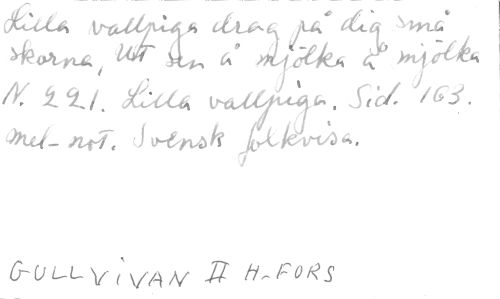 Lilla vallpiga drag på dig små
skorna, Ut sen å mjölka å mjölka
N. 221. Lilla vallpiga. Sid. 163.
mel-not. Svensk folkvisa.
GULLVIVAN II H-FORS